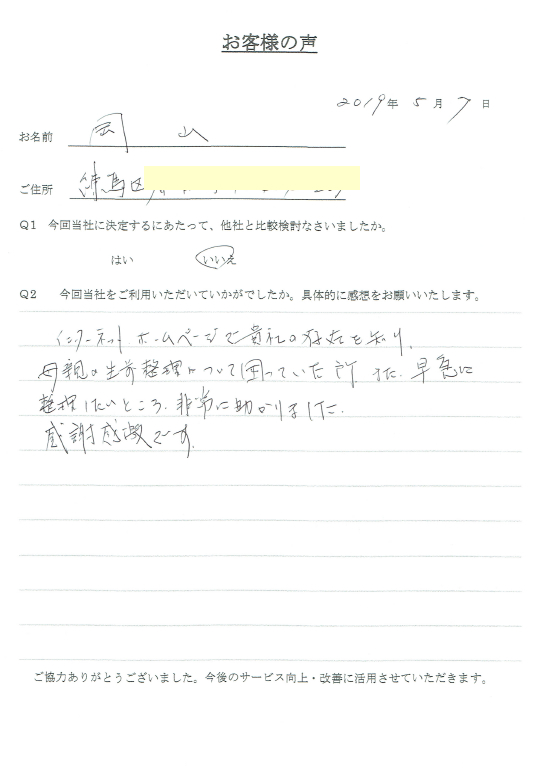 お客様の声
2019年 5月 7日
お名前 岡 山
ご住所 練馬区
Q1 今回当社に決定するにあたって、他社と比較検討なさいましたか。
はい いいえ
Q2 今回当社をご利用いただいていかがでしたか。具体的に感想をお願いいたします。
インターネット.ホームページで貴社の存在を知り、
母親の生前整理について困っていた所 また、早急に
整理したいところ、非常に助かりました.
感謝感激です。
ご協力ありがとうございました。今後のサービス向上・改善に活用させていただきます。